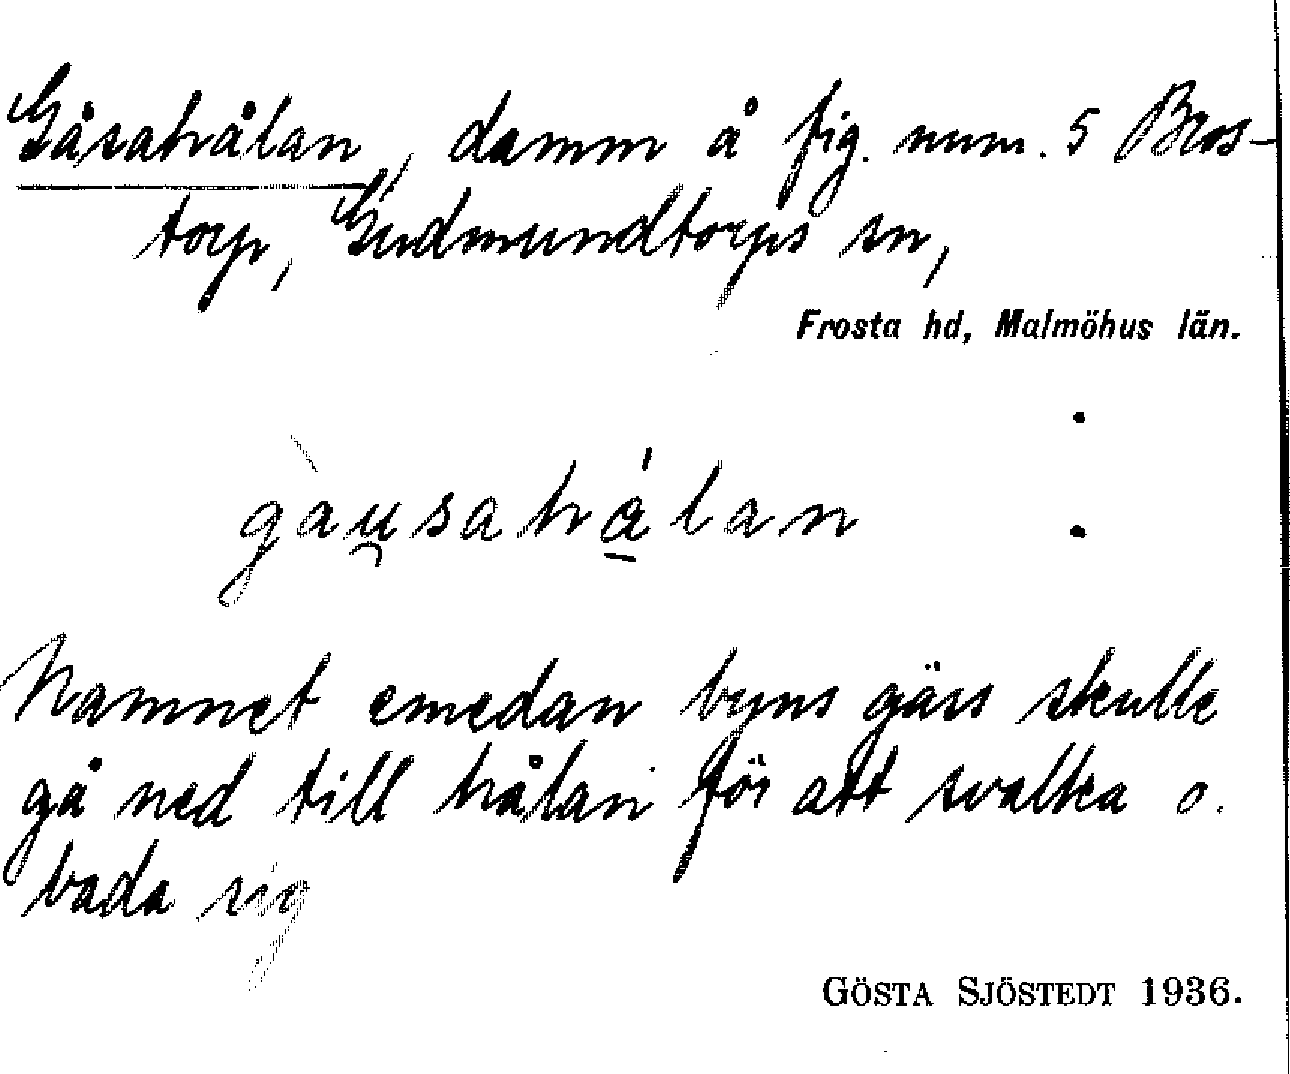 Gåsahålan, damm å fig. num. 5 Bros-
torp, Gudmundtorps sn,
Frosta hd, Malmöhus län.
gàu̯sahá̱lan
Namnet emedan byns gäss skulle
gå ned till hålan för att svalka o.
bada sig
GÖSTA SJÖSTEDT 1936.